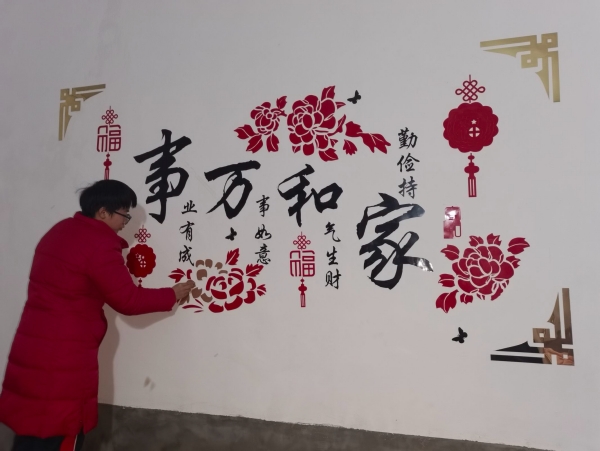 勤俭持家
和气生财
万事如意
事业有成
福
福